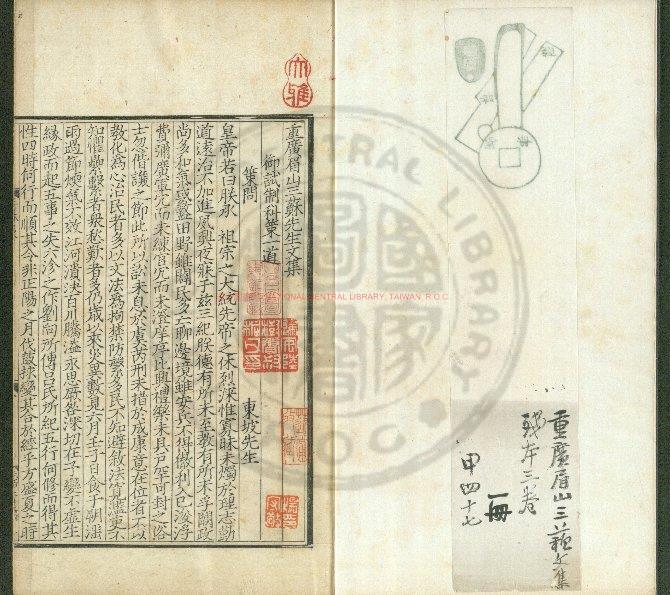 重廣眉山三蘇文集
殘本三卷
一冊
甲四十七
大雅
重廣眉山三蘇先生文集
御試制科策一道
策問 東坡先生
皇帝若曰朕承 祖宗之大統先帝之休烈深惟寡昧未燭於理志勤
道遠治不加進夙興夜寐于茲三紀朕德有所未至教有所未孚闕政
尚多和氣或盭田野雖闢民多亡聊邊境雖安兵不得徹利入已浚浮
費彌廣軍冗而未練官冗而未澄庠序比興禮樂未具戶罕可封之俗
士忽偕讓之節此所以訟未息於虞芮刑未措於成康意在位者不以
教化為心治民者多以文法為拘禁防繁多民不知避敘法寬濫吏不
知懼纍繫者衆愁歎者多仍歲以來災異數見六月壬子日食于朔淫
雨過節燠氣不效江河潰決百川騰溢永思厥咎深切在予變不虛生
緣政而起五事之失六沴之作劉向所傳呂氏所紀五行何修而得其
性四時何行而順其令非正陽之月伐鼓捄變其合於經乎方盛夏之時
NATIONAL CENTRAL LIBRARY, TAIWAN, R.O.C.